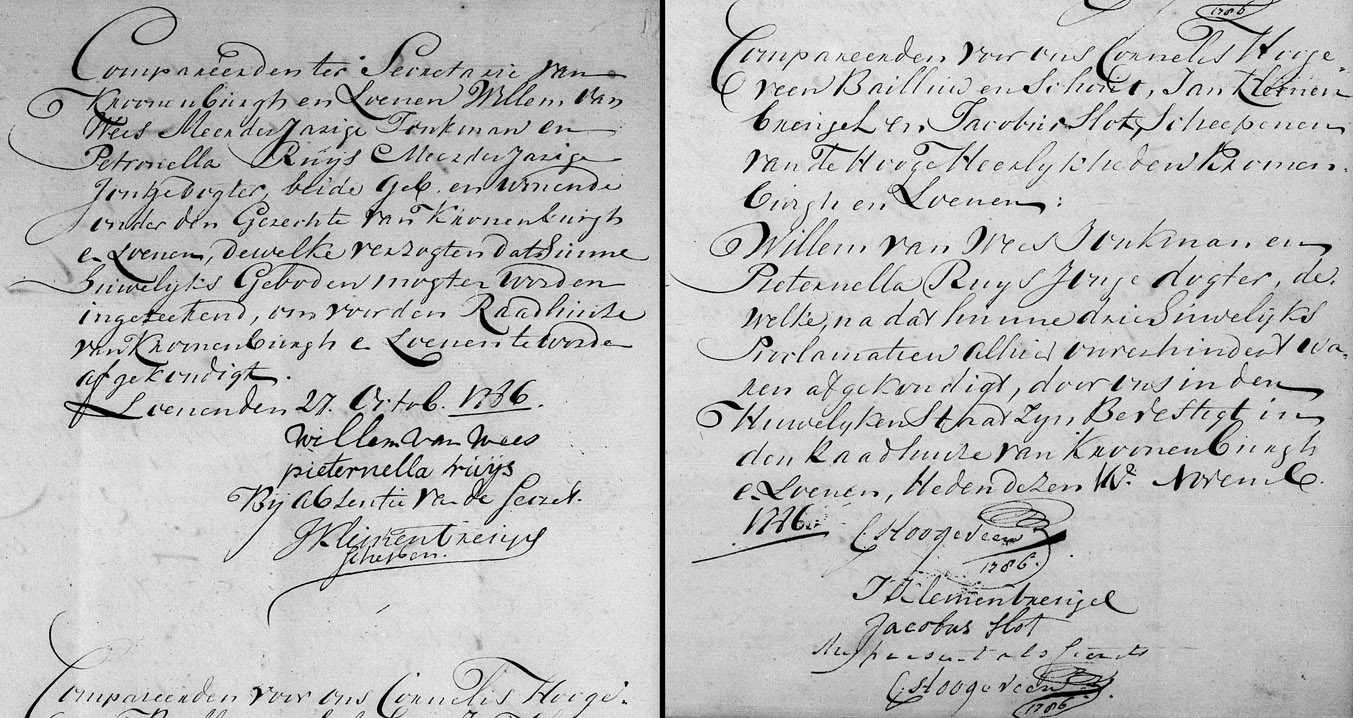 Compareerden ter Secretarie van
Kroonenburgh en Loenen Willem van
Wees Meerderjarige Jonkman en
Petronella Ruijs Meerderjarige
Jongedogter, beide geb. en wonende
onder den Gerechte van Kronenburgh
e Loenen, dewelke verzogten dat hunne
huwelijks Geboden mogten worden
ingeteekend, om voor den Raadhuize
van Kroonenburgh e Loenen te worde
afgekondigt.
Loenen den 27. Octob. 1786.
Willem van Wees
pieternella ruijs
Bij absentie van de Secret.
JKleinenbreugel
schepen.
Compareerden voor ons Cornelis Hooge-
1786
Compareerden voor ons Cornelis Hooge-
veen Bailliu en Schout, Jan Kleinen
breugel en Jacobus Slot, Scheepenen
van de Hooge Heerlykheden Kronen-
burgh en Loenen:
Willem van Wees Jonkman en
Pieternella Ruys Jonge dogter, de
welke, na dat hunne drie huwelyks
Proclamatien alhier onverhindert wa-
ren afgekondigt, door ons in den
Huwelyken Staat zyn Bevestigt in
den Raadhuize van Kroonenburgh
e Loenen, Heden dezen Novemb.
1786.
C. Hoogeveen
1786.
J Kleinenbreugel
Jacobus Slot
My present als
C. Hoogeveen
1786